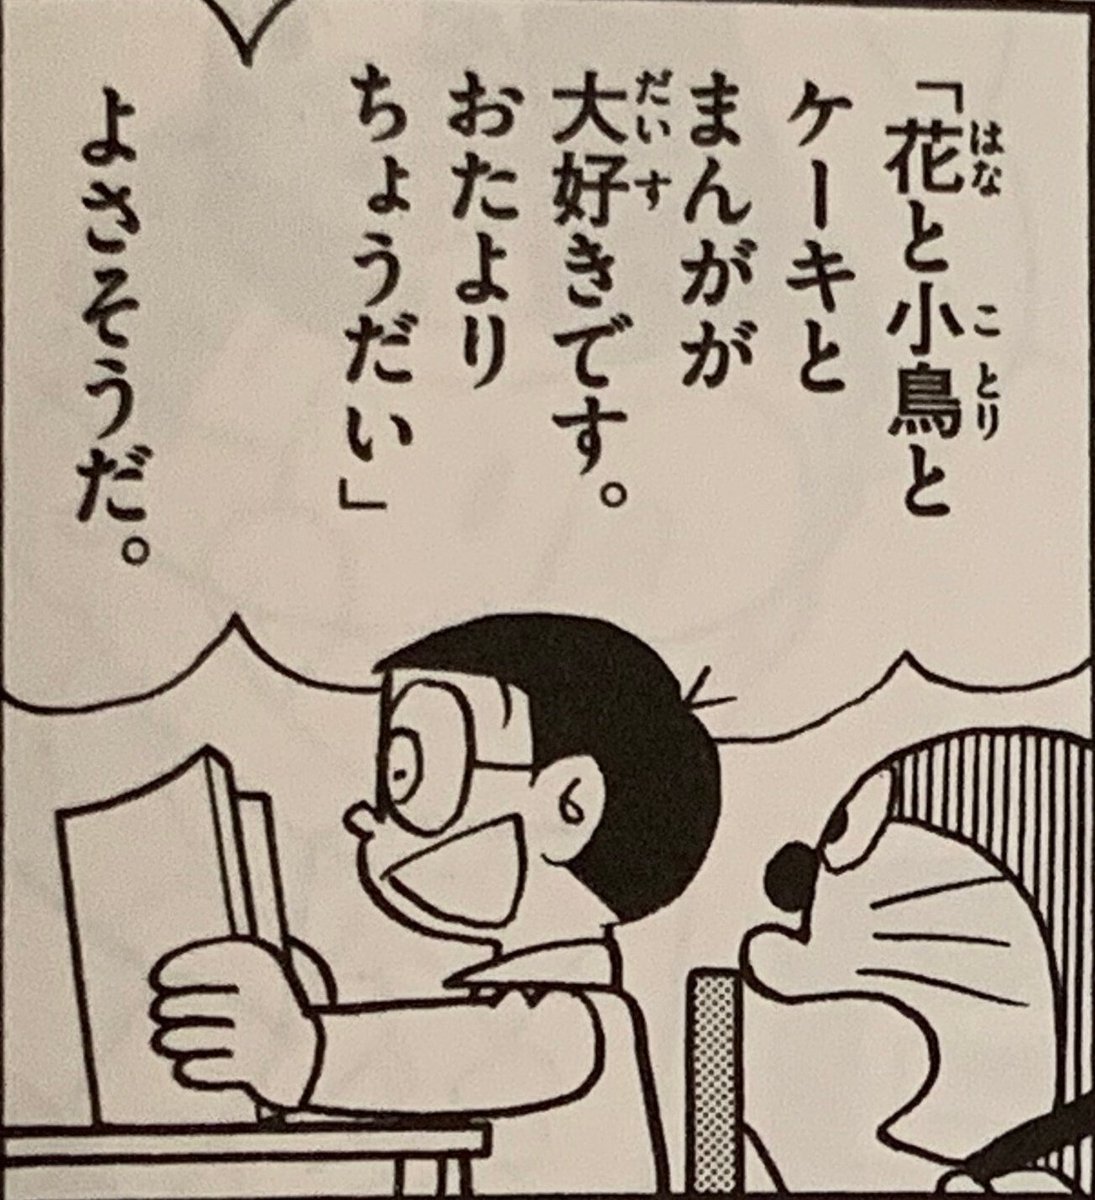 「花と小鳥と
ケーキと
まんがが
大好きです。
おたより
ちょうだい」
よさそうだ。